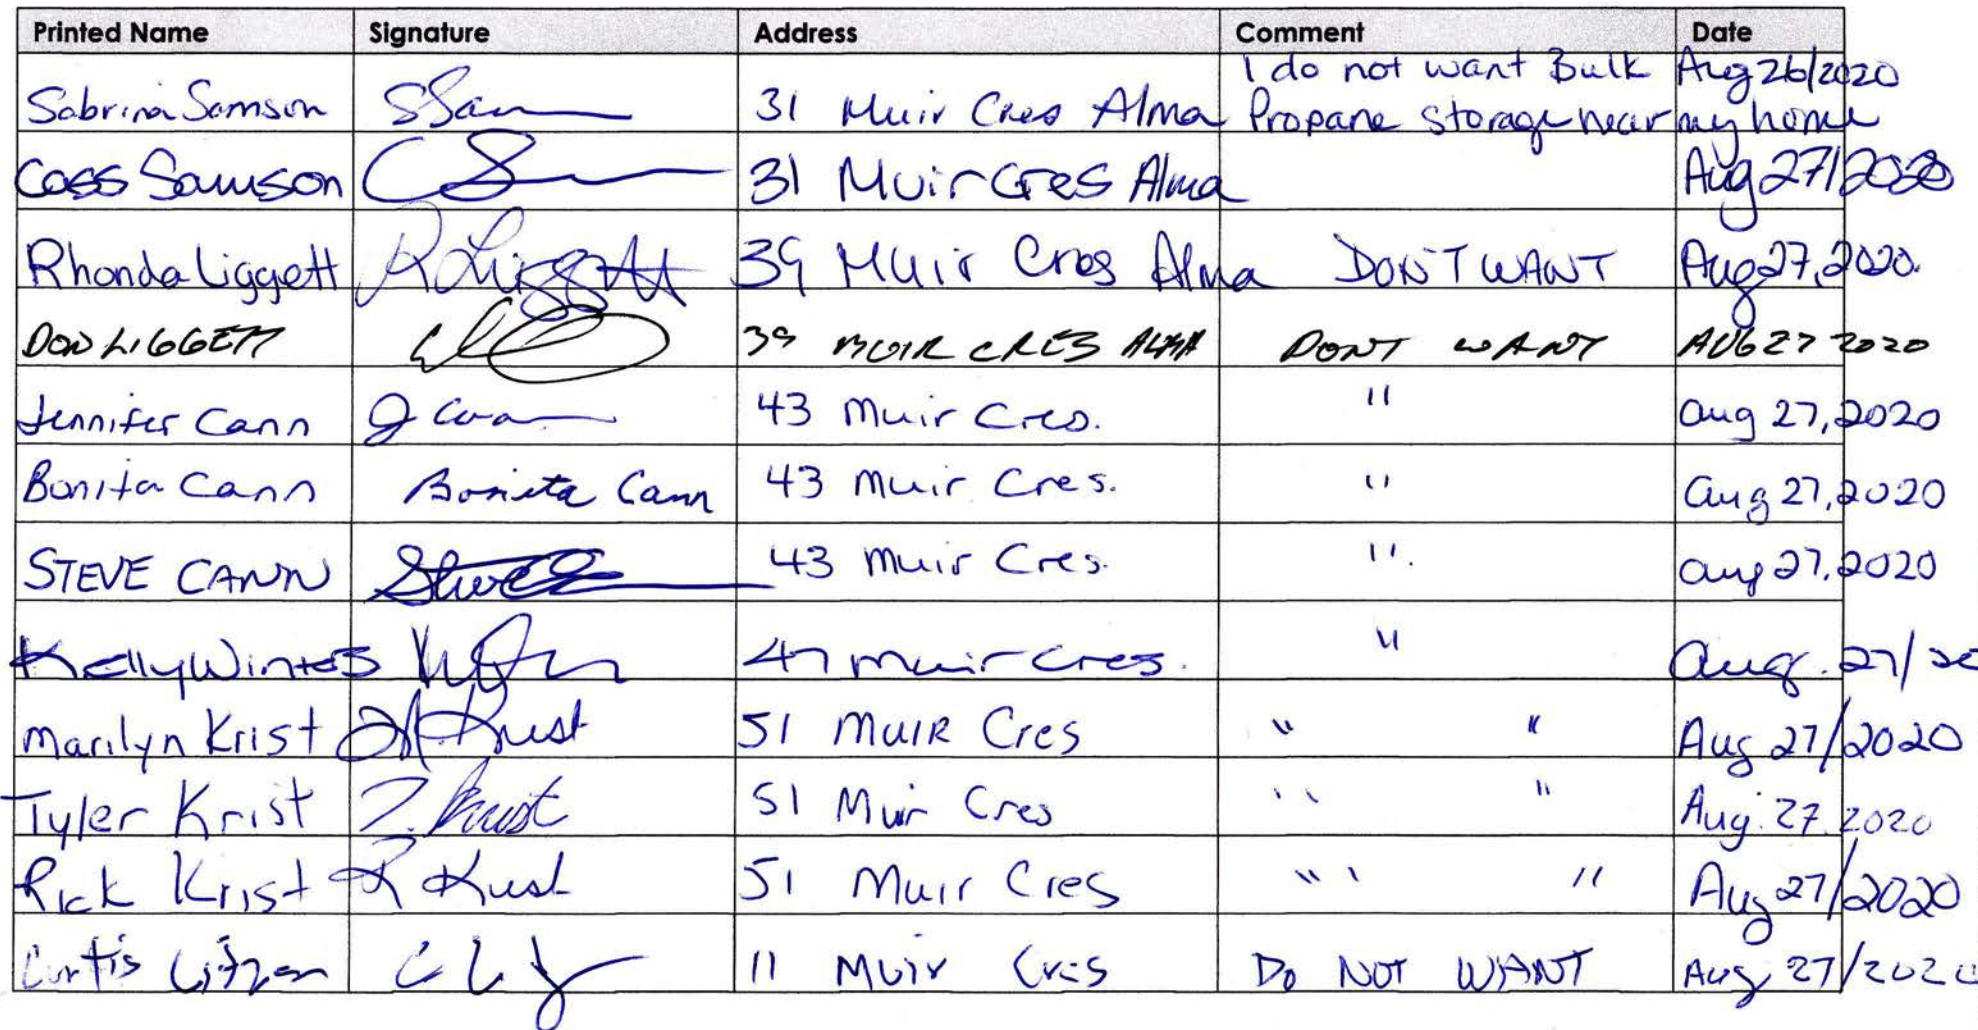 Printed Name Signature Address Comment Date
Sabrina Samson SSam 31 Muir Cres Alma I do not want Bulk Aug 26/2020
Propane storage near my home
Cass Samson 31 Muir Cres Alma Aug 27/2020
Rhonda Liggett R Liggett 39 Muir Cres Alma DON'T WANT Aug 27, 2020.
DON LIGGETT 39 MUIR CRES ALMA DONT WANT AUG 27 2020
Jennifer Cann J Cann 43 Muir Cres. " Aug 27, 2020
Bonita Cann Bonita Cann 43 Muir Cres. " Aug 27, 2020
STEVE CANN Steve 43 Muir Cres. " Aug 27, 2020
Kelly Winters 47 Muir Cres. " Aug. 27/20
Marilyn Krist M Krist 51 MUIR Cres " " Aug 27/2020
Tyler Krist T. Krist 51 Muir Cres " " Aug. 27. 2020
Rick Krist R Krist 51 Muir Cres " " Aug 27/2020
Curtis 11 Muir Cres DO NOT WANT Aug 27/2020